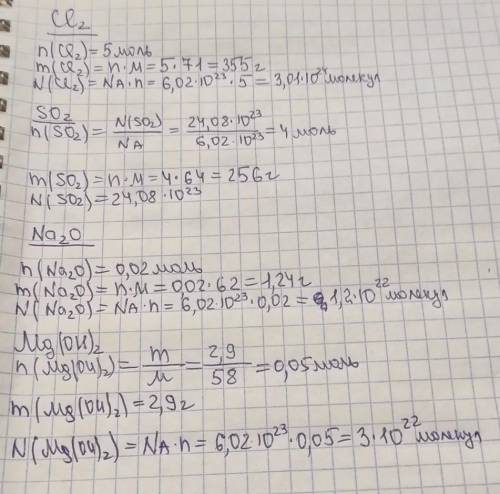 Cl₂
n(Cl₂)=5 моль
m(Cl₂)=n·M=5·71=355г
N(Cl₂)=NA·n=6,02·10²³·5=3,01·10²⁴молекул
SO₂
n(SO₂)=N(SO₂)/NA=24,08·10²³/6,02·10²³=4 моль
m(SO₂)=n·M=4·64=256г
N(SO₂)=24,08·10²³
Na₂O
n(Na₂O)=0,02моль
m(Na₂O)=n·M=002·62=1,24г
N(Na₂O)=NA·n=6,02·10²³·0,02=1,2·10²² молекул
Mg(OH)₂
n(Mg(OH)₂)=m/M=2,9/58=0,05моль
m(Mg(OH)₂)=2,9г
N(Mg(OH)₂)=NA·n=6,02·10²³·0,05=3·10²² молекул